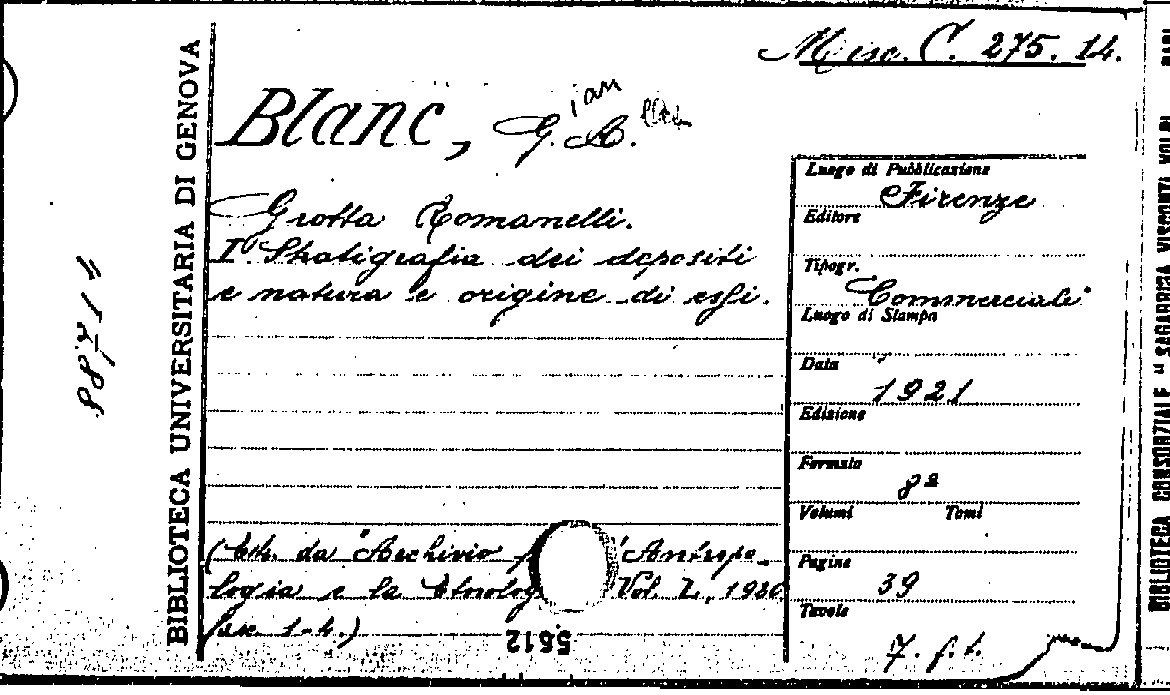 Misc. C. 275. 14.
Blanc, G. A.
ian
Grotta Romanelli.
I° Stratigrafia dei depositi
e natura e origine di essi.
(Estr. da "Archivio 'Antropo-
logia e la Etnolog Vol. L, 1920
fasc. 1-4.)
5612
BIBLIOTECA UNIVERSITARIA DI GENOVA
Luogo di Pubblicazione
Firenze
Editore
Tipogr.
"Commerciale"
Luogo di Stampa
Data
1921
Edizione
Formato
8ª
Volumi Tomi
Pagine
39
Tavole
7. f. t.
BIBLIOTECA CONSORZIALE "SAGARRIGA VISCONTI VOLPI
BARI